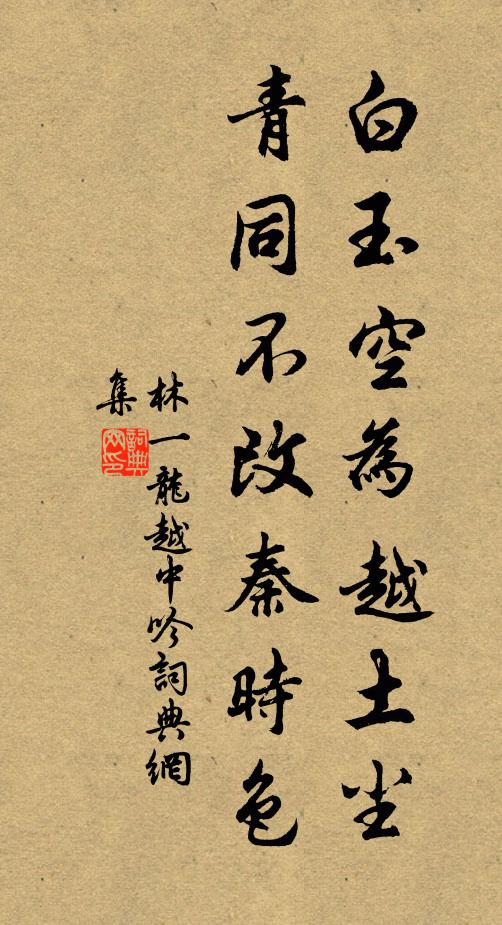 白玉空為越土尘
青同不改秦時色
林一龍越中吟詞典網
集
詞典
网印